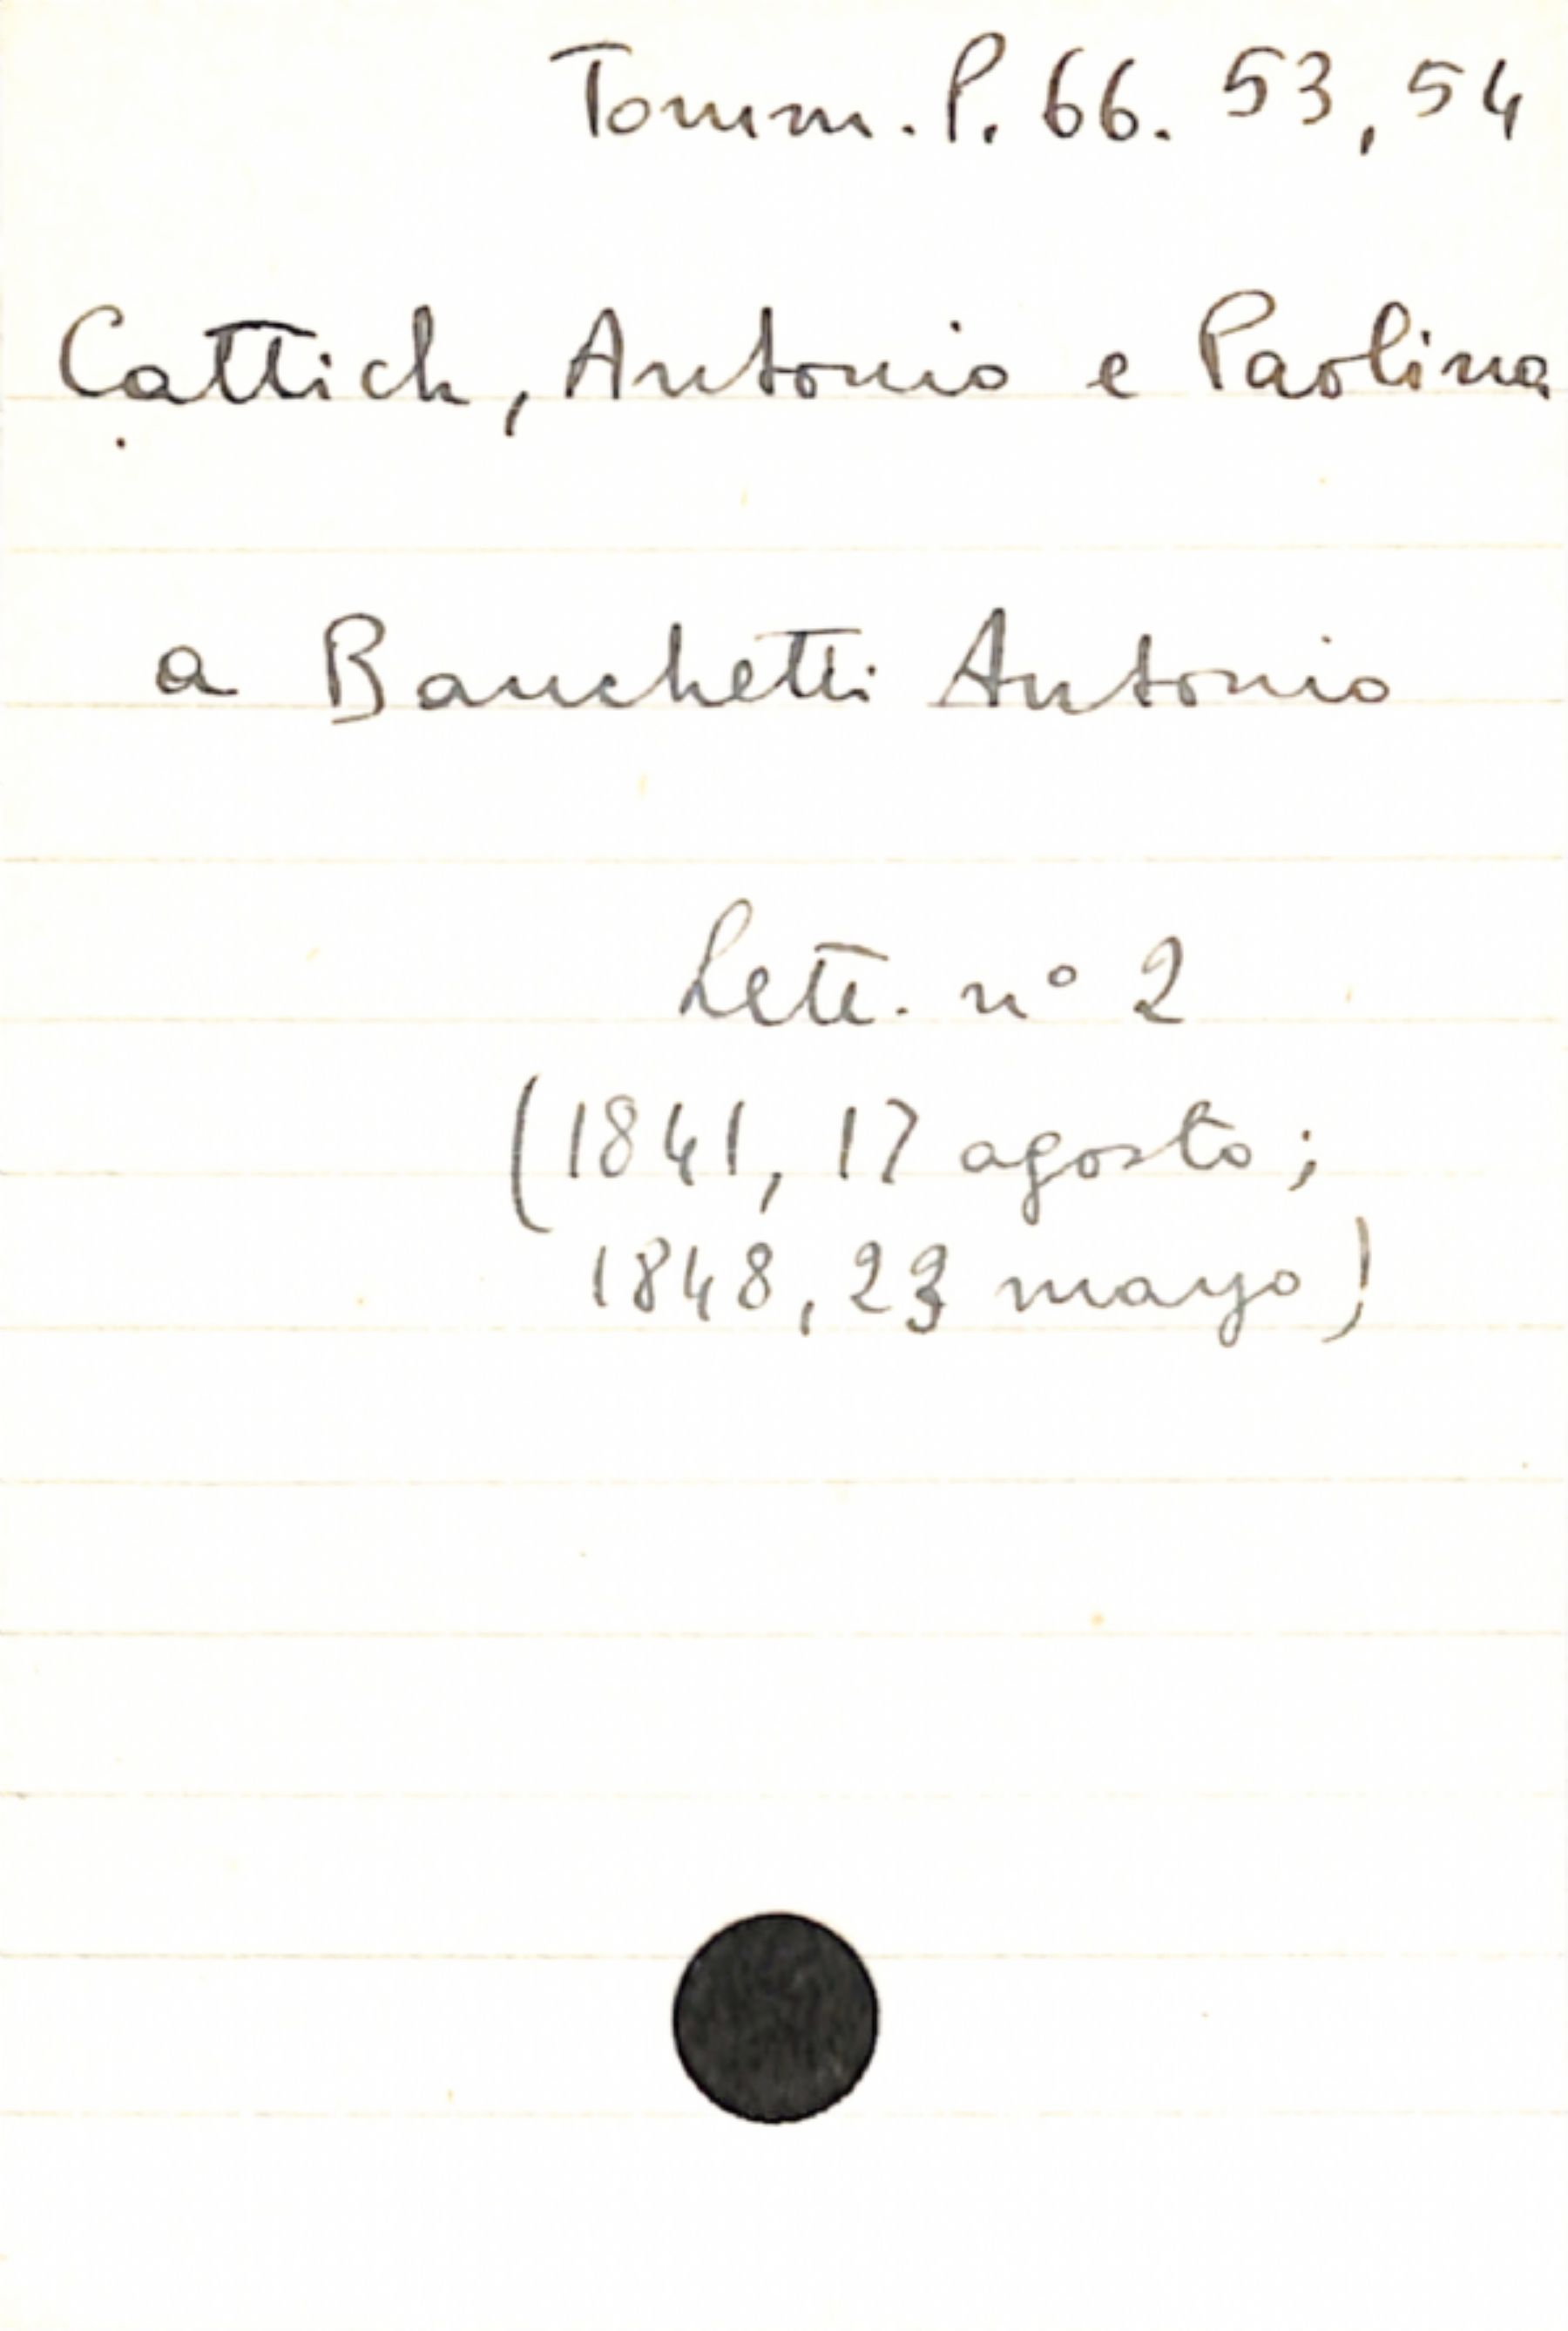 Tomm. P. 66. 53, 54
Cattich, Antonio e Paolina
a Banchetti Antonio
Lett. n° 2
(1841, 17 agosto;
1848, 23 mayo)